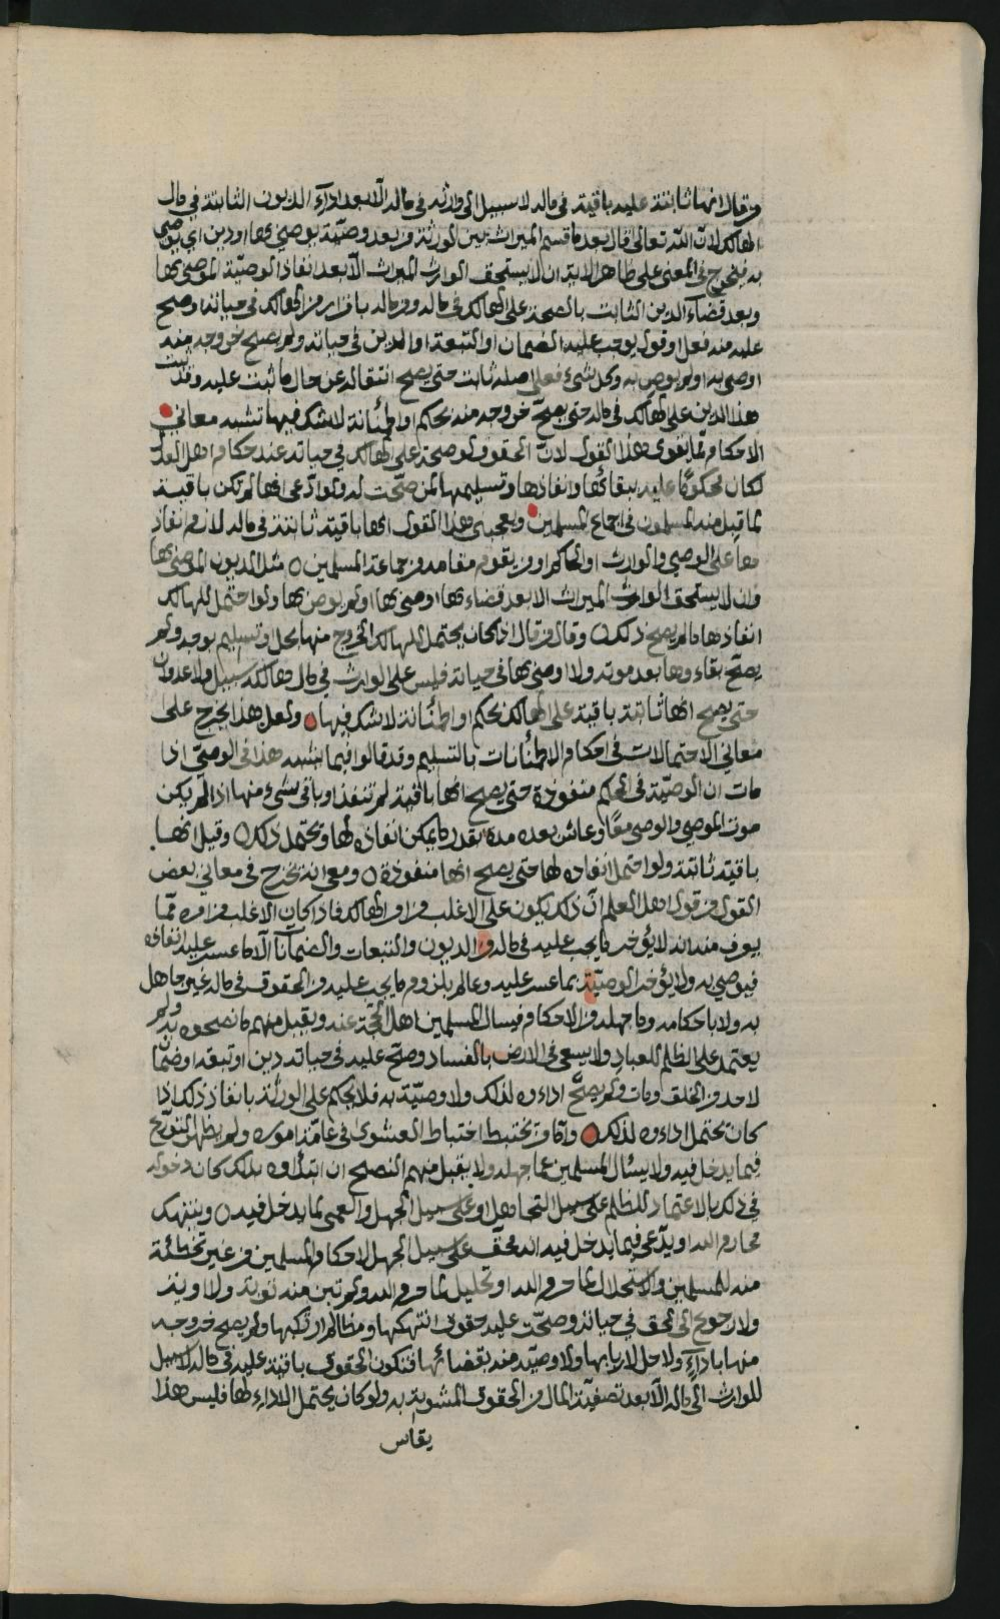 وقال انها ثابتة عليه باقية في ماله لا سبيل الى وارثه في ماله الا بعد اداء الديون الثابتة في مال
الهالك لان الله تعالى قال بعد ما قسم الميراث بين الورثة من بعد وصية يوصي بها او دين اي يوصي
به فيخرج في المعنى على ظاهر الاية ان لا يستحق الوارث الميراث الا بعد انفاذ الوصية الموصى بها
وبعد قضاء الدين الثابت بالصحة على الهالك في ماله ومن ماله باقرار من الهالك في حياته او صح
عليه منه فعل او قول يوجب عليه الضمان او التبعة او الدين في حياته ولم يصح خروجه منه
اوصى به او لم يوص به وكل شيء فعلى اصله ثابت حتى يصح انتقاله عن حال ما ثبت عليه وقد ثبت
هذا الدين على الهالك في ماله حتى يصح خروجه منه بحكم او اطمئانة لا شك فيها تشبه معاني
الاحكام مما يقوى هذا القول لان الحقوق لو صحت على الهالك في حياته عند حكام اهل العدل
لكان محكوما عليه ببقائها وانفاذها وتسليمها لمن صحت له ولو ادعى انها لم تكن باقية
لما قبل منه المسلمون في اجماع المسلمين ويعجبني هذا القول انها باقية ثابتة في ماله لازم انفاذ
ها على الوصي والوارث او الحاكم او من يقوم مقامه من جماعة المسلمين ه مثل الديون الموصى بها
وان لا يستحق الوارث الميراث الا بعد قضاءها اوصى بها او لم يوص بها ولو احتمل للهالك
انفاذها ما لم يصح ذلك ه وقال من قال اذا كان يحتمل للهالك الخروج منها بحل وتسليم بوجه ولم
يصح بقاءوها بعد موته ولا اوصى بها في حياته فليس على الوارث في مال هالكه سبيل ولا عدوان
حتى يصح انها ثابتة باقية على الهالك بحكم او اطمئانة لا شك فيها ولعل هذا يخرج على
معاني الاحتمالات في احكام الاطمئنانات بالتسليم وقد قالوا فيما يشبه هذا في الوصي اذا
مات ان الوصية في الحكم منفوذة حتى يصح انها باقية لم تنفذ او باقي شيء منها اذا لم يكن
موت الموصي والوصي معا وعاش بعده مدة بقدر ما يمكن انفاذه لها ويحتمل ذلك ه وقيل انها
باقية ثابتة ولو احتمل انفاده لها حتى يصح انها منفوذة ه ومعي انه يخرج في معاني بعض
القول من قول اهل العلم ان ذلك يكون على الاغلب من امر الهالك فاذا كان الاغلب من امره مما
يعرف منه انه لا يؤخر ما يجب عليه في ماله من الديون والتبعات والضمانات الا ما عسر عليه انفاذه
فيوصي به ولا يؤخر الوصية بما عسر عليه وعالم بلزوم ما يجب عليه من الحقوق في ماله غير جاهل
به ولا باحكامه وما جهله من الاحكام فيسال المسلمين اهل الحجة عنه ويقبل منهم ما نصحوه به ولم
يعتمد على الظلم للعباد ولا يسعى في الارض بالفساد وصح عليه في حياته دين او تبعة او ضمان
لاحد من الخلق ومات ولم يصح اداءوه لذلك ولا وصية به فلا يحكم على الورثة بانفاذ ذلك اذا
كان يحتمل اداءوه لذلك واما من يختبط اختباط العشوى في عامة اموره ولم يظهر التورع
فيما يدخل فيه ولا يسئال المسلمين عما جهله ولا يقبل منهم النصح ان ابتداوه بذلك كان دخوله
في ذلك بالاعتماد للظلم على سبيل التجاهل او على سبيل الجهل والعمى لما يدخل فيه ه وينتهك
محارم الله او يدعي فيما يدخل فيه انه محق على سبيل الجهل لاحكام المسلمين من غير تخطئة
منه للمسلمين ولا استحلال لما حرم الله او تحليل لما حرم الله ولم تبن منه توبة ولا اوبة
ولا رجوع الى الحق في حياته وصحت عليه حقوق انتهكها ومظالم ارتكبها ولم يصح خروجه
منها باداء ولا حل لاربابها ولا وصية منه بقضائها فتكون الحقوق باقية عليه في ماله لا سبيل
للوارث الى ماله الا بعد تصفية المال من الحقوق المشوبة به ولو كان يحتمل الاداء لها فليس هذا
يقاس